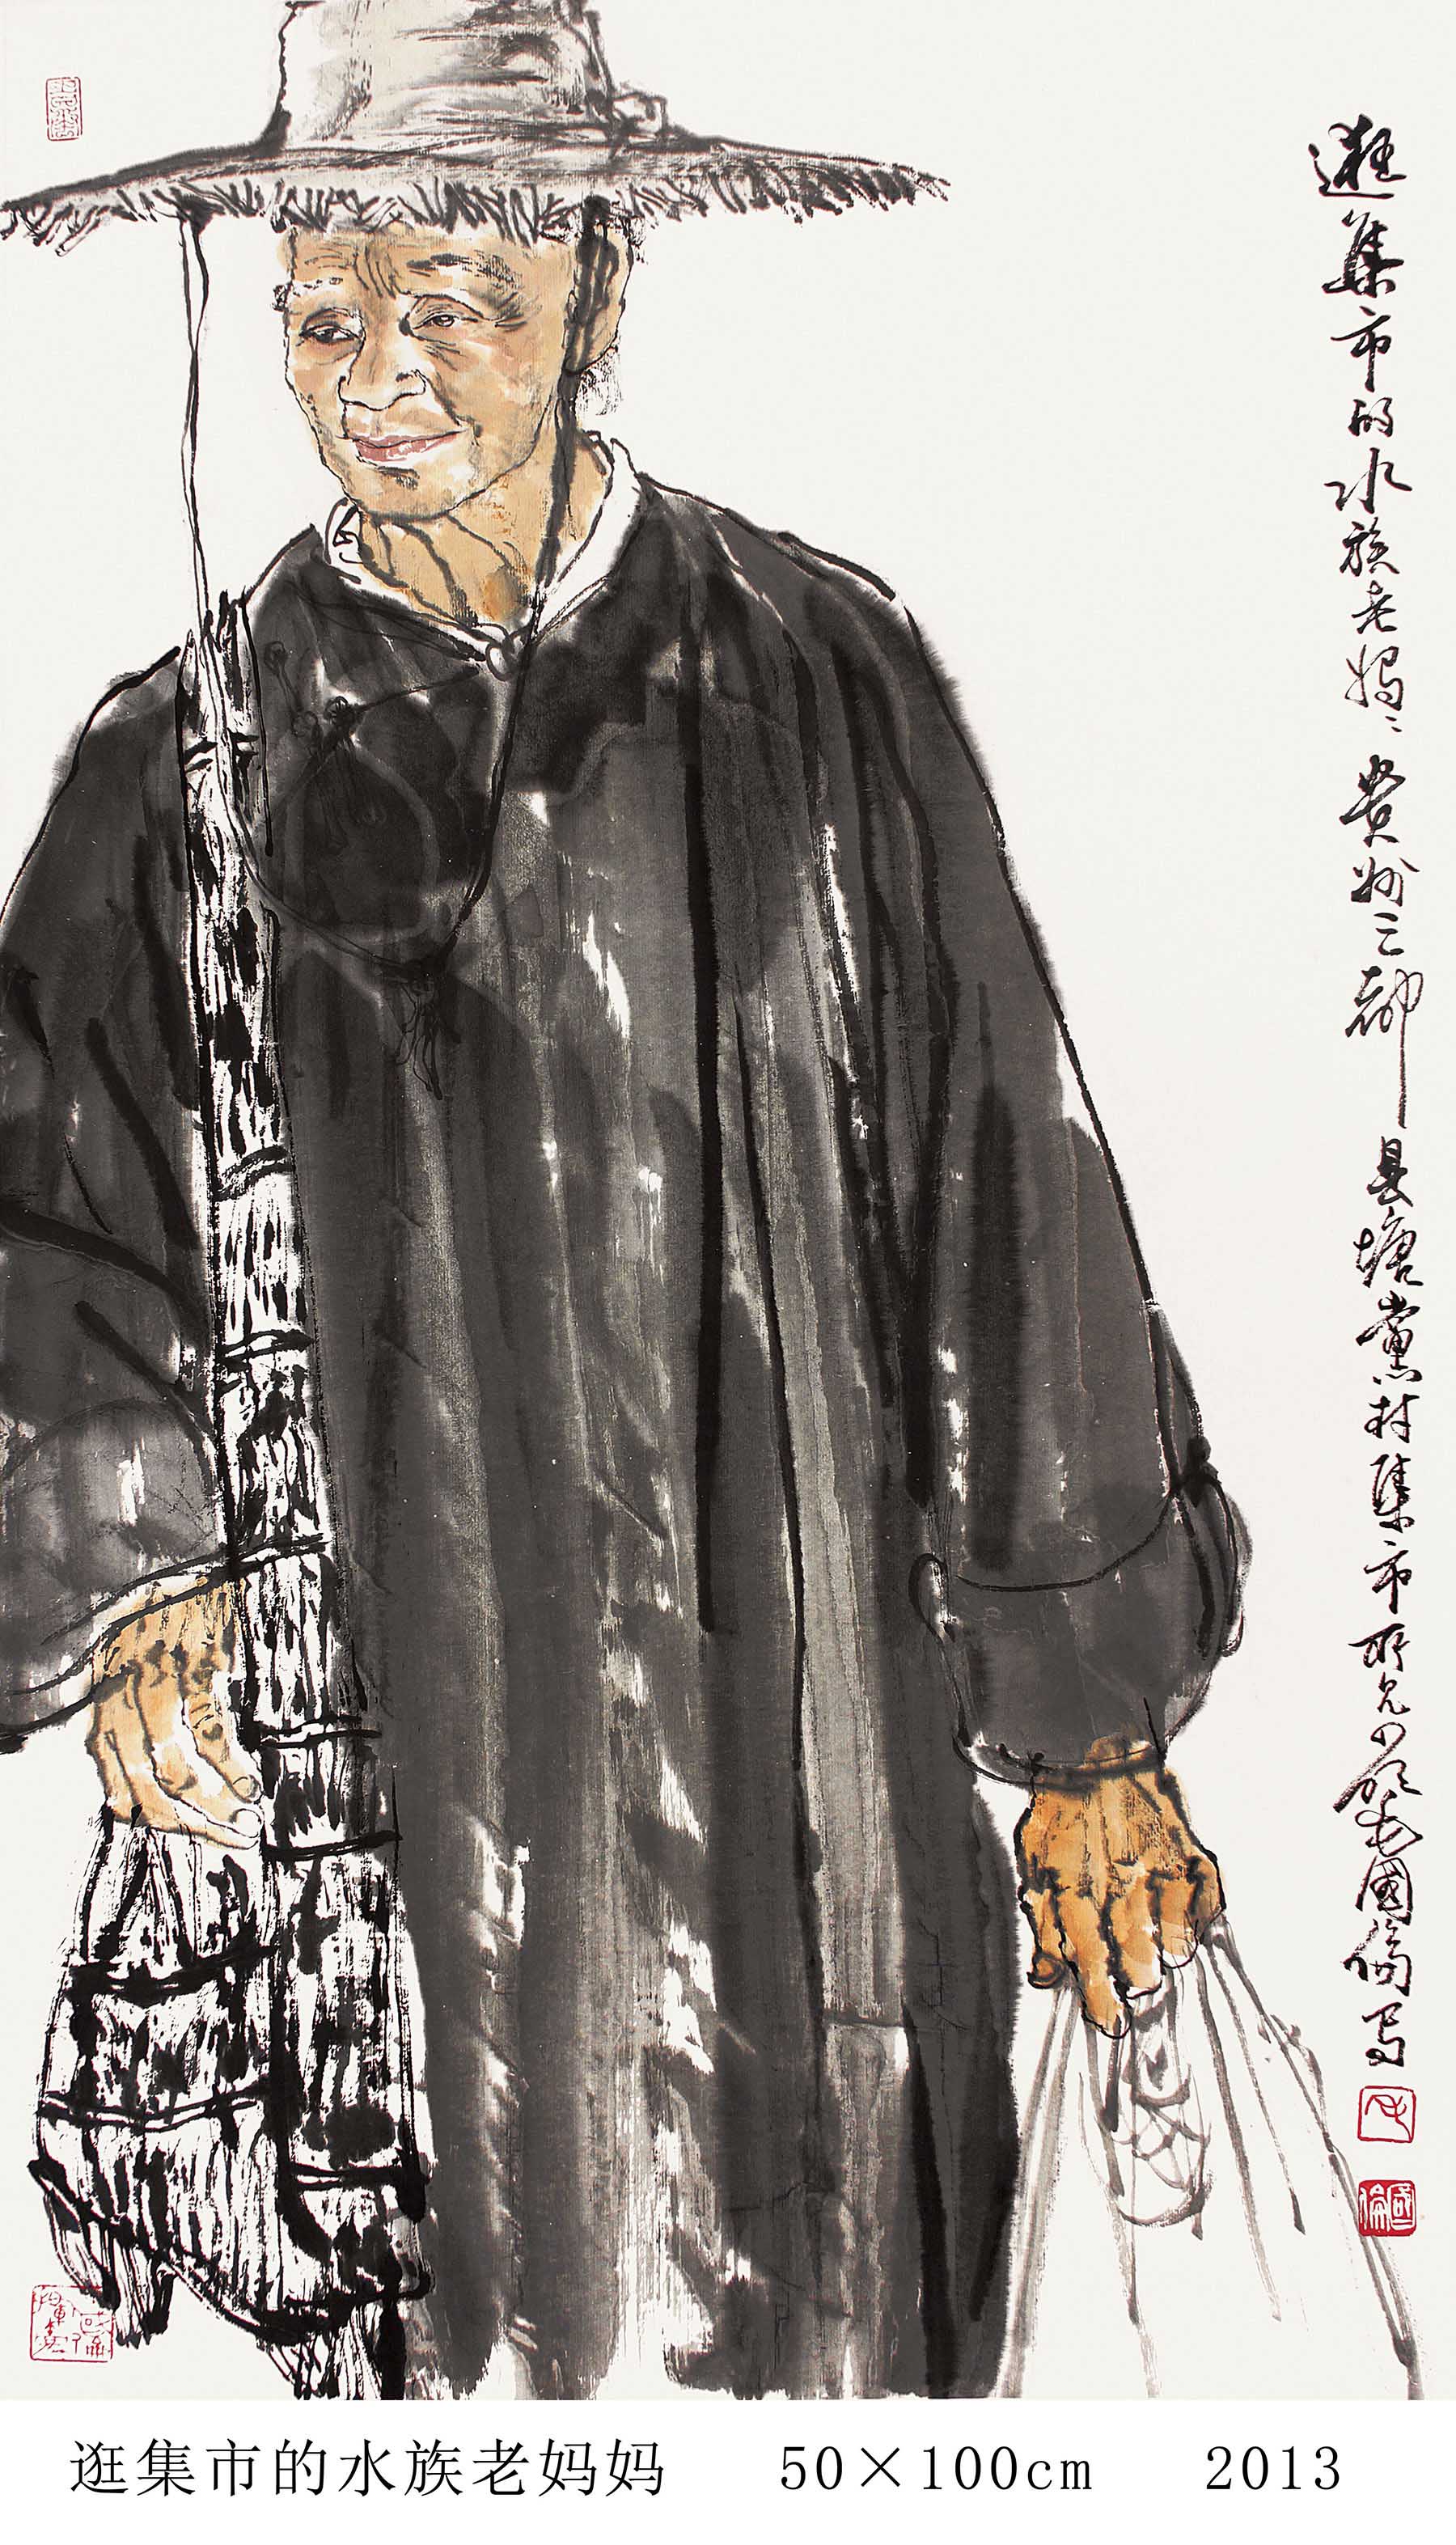 逛集市的水族老妈〻贵州三都县塘党村集市所见
國倫写
國倫
逛集市的水族老妈妈 50×100cm 2013